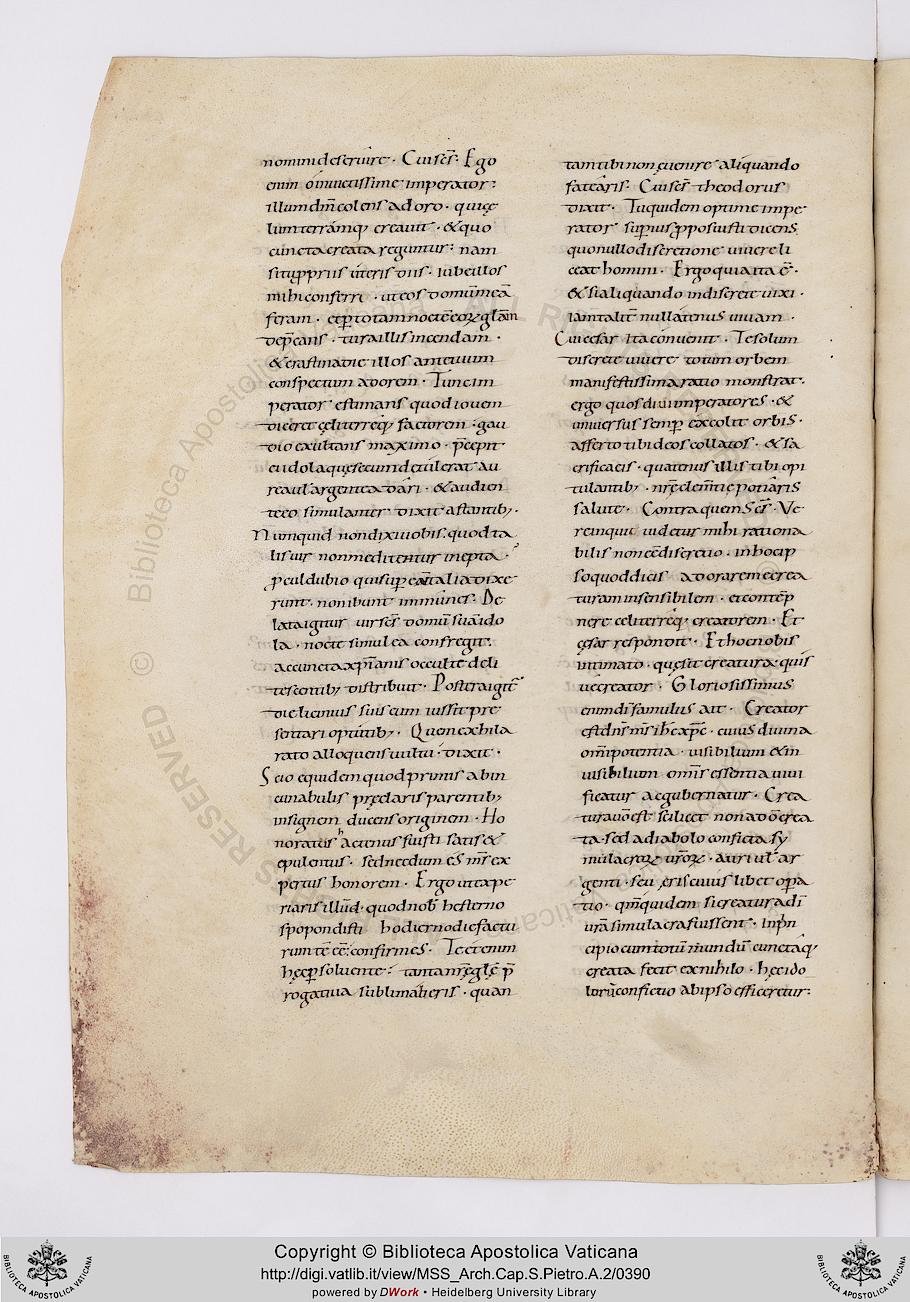 nomini deservire · Cui sc̄s · Ego
enim o invictissime imperator :
illum dn̄m colens adoro · qui cę
lum terrāmq; creavit · & quo
cuncta creata reguntur : nam
si tu p̄priis ūteris diis · iube illos
mihi conferri · ut eos domū meā
feram · et p̱ totam noctē eoꝝ glām
dep̄cans · tura illis incendam ·
& crastina die illos ante tuum
conspectum adorem · Tunc im
perator estimans quod iovem
diceret cęli terręq; factorem : gau
dio exultans maximo · p̄cepit
ei idola quę secum detulerat au
rea ul̄ argentea dari · & audien
te eo simulanter dixit astantib; ·
Numquid non dixi vobis · quod ta
lis vir non meditetur inepta ·
p̄culdubio qui sup̱ eū talia dixe
runt · non ibunt immunes · De
lata igitur vir sc̄s domū suā ido
la · nocte simul ea confregit ·
ac cuncta xp̄ianis occulte deli
tescentib; distribuit · Postera igit̄
die licinius suis eum iussit pre
sentari optutib; · Quem exhila
rato alloquens vultu · dixit ·
Scio equidem quod primis ab in
cunabulis pręclaris parentib;
insignem ducens originem · Ho
noratus hactenus fuisti satis &
opulentus · sed necdum es nr̄i ex
pertus honorem · Ergo ut ape
riaris illud · quod nob̄ hesterno
spopondisti hodierno die factu
rum te eē : confirmes · Te etenim
hęc p̱solvente : tanta nr̄ę glę p̄
rogativa sublimaberis · quan
tam tibi non evenire aliquando
fatearis · Cui sc̄s theodorus
dixit · Tu quidem optime impe
rator sup̱ius p̄posuisti dicens
quo nullo discretione vivere li
ceat homini · Ergo quia ita ē ·
& si aliquando indiscrete vixi ·
iam talit̄ nullatenus vivam ·
Cui cesar Ita convenit · Te solum
discrete vivere totum orbem
manifestissima ratio monstrat ·
ergo quos divi imperatores · &
universus semp̱ excolit orbis ·
assero tibi deos collatos · & sa
crificacis · quatenus illis tibi opi
tulantib; · nr̄ę clem̄tię potiaris
salute · Contra quem sc̄s · Ve
re inquit videtur mihi rationa
bilis non eē discretio · in hoc ip
so quod dicis adorarem crea
turam insensibilem · et contēp
nere celi terręq; creatorem · Et
cęsar respondit · Et hoc nobis
intimato · quę sit creatura · quis
ve creator · Gloriosissimus
enim di famulus ait · Creator
est dn̄s nr̄s ih̄c xp̄c · cuius divina
om̄ipotentia · visibilium & in
visibilium om̄is essentia vivi
ficatur ac gubernatur · Crea
tura v̄o est scilicet non a dō crea
ta · sed a diabolo conficta sy
mulacroꝝ vr̄oꝝ · auri ul̄ ar
genti · seu ęris cuius libet op̱a
tio · qm̄ quidem si creatura dī
vr̄a simulacra fuissent · in p̄n
cipio cum totū mundū cunctāq;
creata fecit ex nihilo · hęc ido
lorū confictio ab ipso efficeretur :
Copyright © Biblioteca Apostolica Vaticana
http://digi.vatlib.it/view/MSS_Arch.Cap.S.Pietro.A.2/0390
powered by DWork • Heidelberg University Library